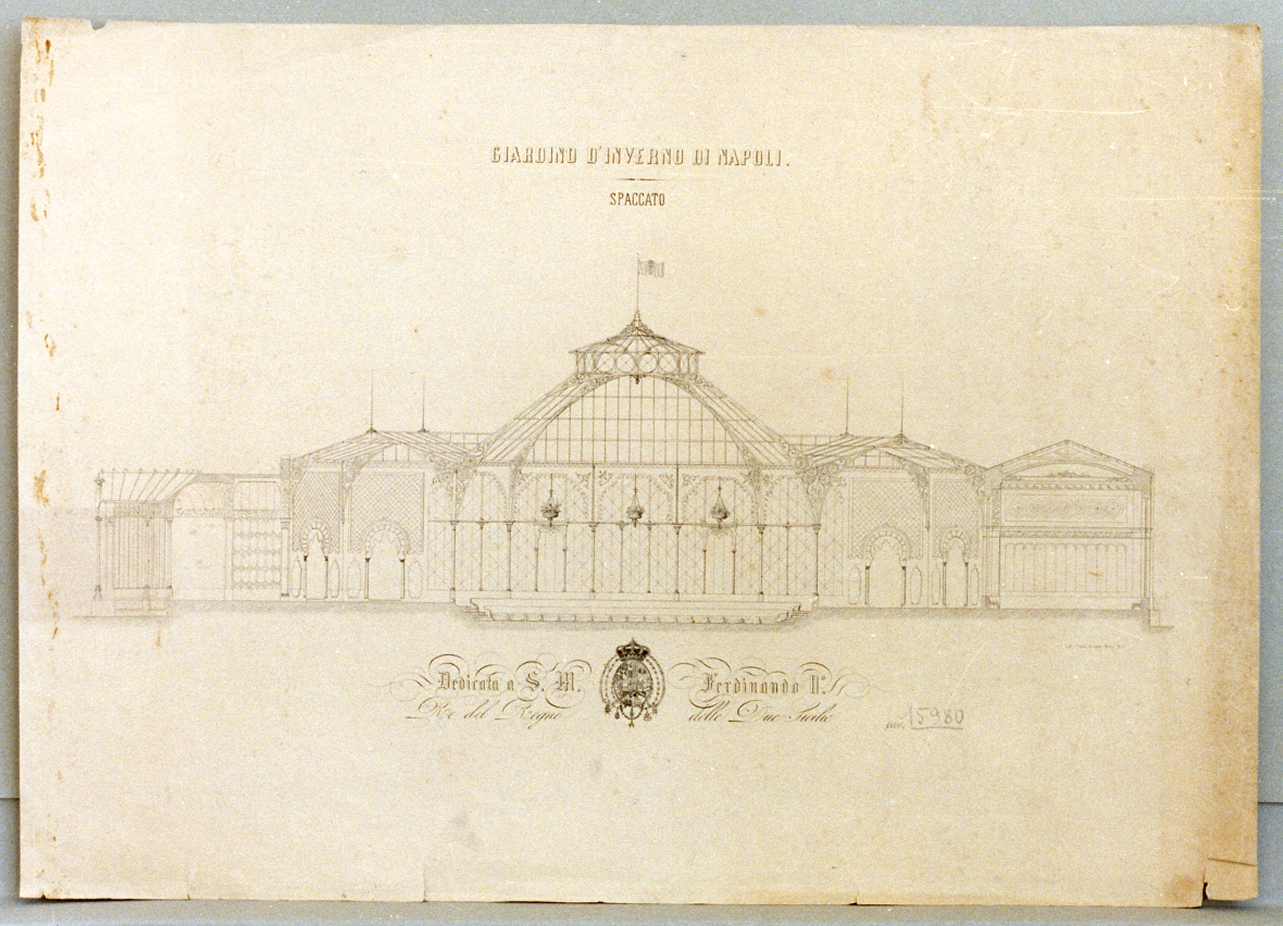 GIARDINO D'INVERNO DI NAPOLI.
SPACCATO
Dedicata a S. M. Ferdinando II°.
Re del Regno delle Due Sicilie
15980